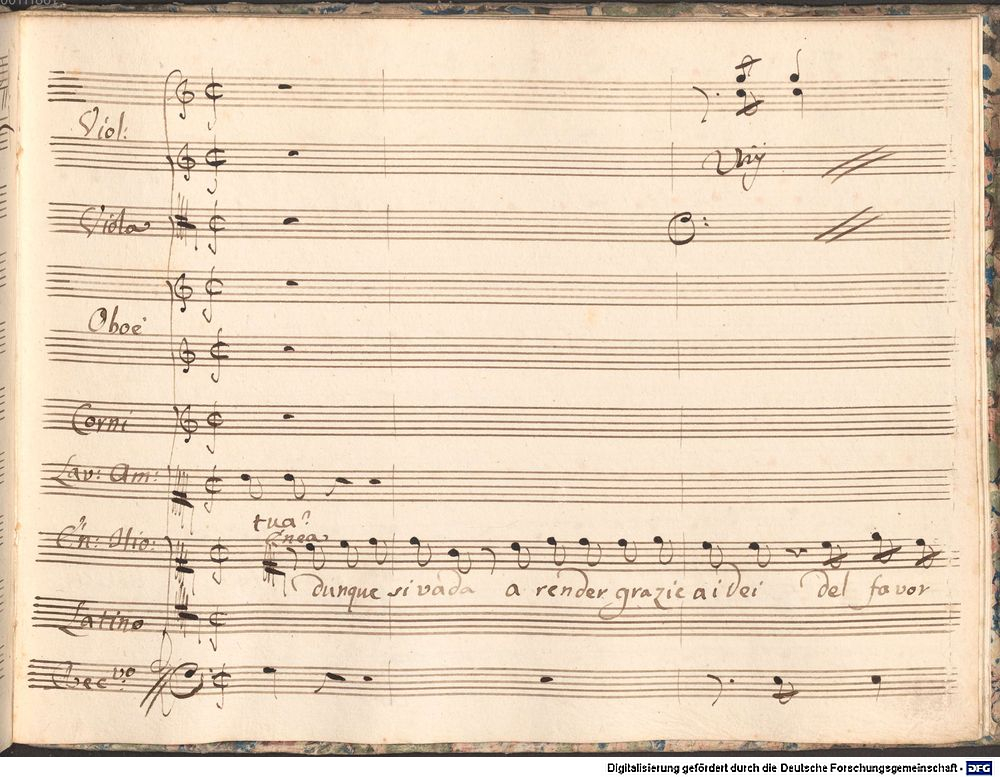 Viol:
Viola
Oboè
Corni
Lav: Am:
tua?
Enea
dunque si vada a render grazie ai Dei del favor
Latino
Rec.vo
Digitalisierung gefördert durch die Deutsche Forschungsgemeinschaft - DFG